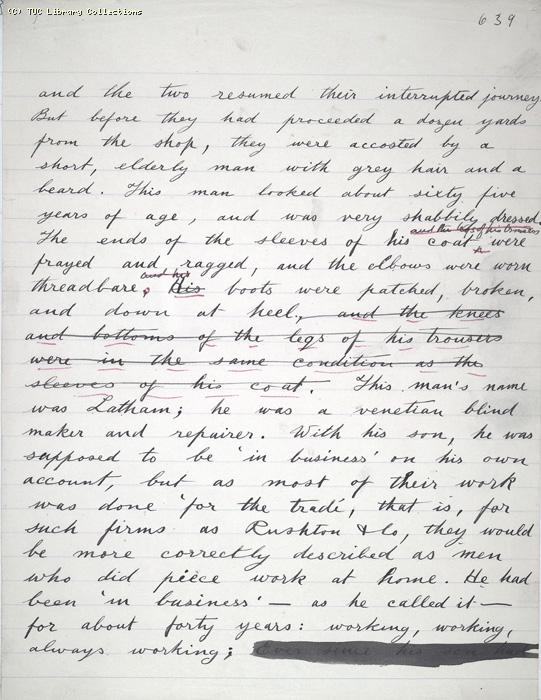 (C) TUC Library Collections
639
and the two resumed their interrupted journey.
But before they had proceeded a dozen yards
from the shop, they were accosted by a
short, elderly man with grey hair and a
beard. This man looked about sixty five
years of age, and was very shabbily dressed.
and the legs of his trousers
The ends of the sleeves of his coat were
frayed and ragged, and the elbows were worn
and his
threadbare. His boots were patched, broken,
and down at heel, and the knees
and bottoms of the legs of his trousers
were in the same condition as the
sleeves of his coat. This man's name
was Latham; he was a venetian blind
maker and repairer. With his son, he was
supposed to be 'in business' on his own
account, but as most of their work
was done 'for the trade', that is, for
such firms as Rushton & Co, they would
be more correctly described as men
who did piece work at home. He had
been 'in business' — as he called it —
for about forty years: working, working,
always working; Ever since his son had